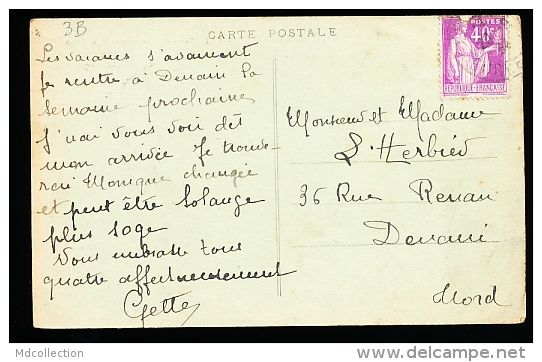 3B
CARTE POSTALE
Les vacances s'avancent
je rentre à Denain la
semaine prochaine
J'irai vous voir dès
mon arrivée Je trouve-
rai Monique changée
et peut être Solange
plus sage
Vous embrasse tous
quatre affectueusement
Gette
POSTES
40c
REPUBLIQUE FRANÇAISE
Monsieur et Madame
L'Herbier
36 Rue Renan
Denain
Nord
MDcollection
http://www.delcampe.net